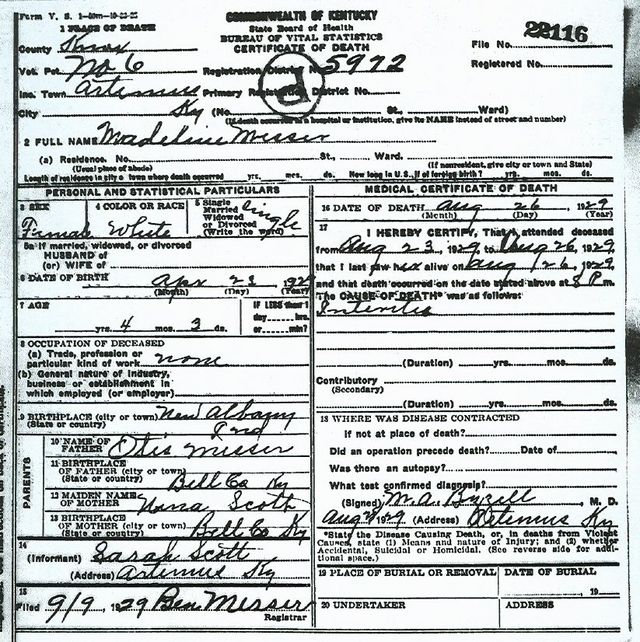 Form V. S. 1-50m-10-23-25
COMMONWEALTH OF KENTUCKY
State Board of Health
BUREAU OF VITAL STATISTICS
CERTIFICATE OF DEATH
1 PLACE OF DEATH
County Knox
File No. 22116
Vot. Pct. No 6 Registration District No. 5972
Registered No.
Inc. Town Artemus Primary Registration District No.
City Ky (No. St., Ward)
(If death occurred in a hospital or institution, give its NAME instead of street and number)
2 FULL NAME Madeline Messer
(a) Residence. No. St., Ward.
(Usual place of abode) (If nonresident, give city or town and State)
Length of residence in city or town where death occurred yrs. mos. ds. How long in U.S., if of foreign birth? yrs. mos. ds.
PERSONAL AND STATISTICAL PARTICULARS
3 SEX
4 COLOR OR RACE
5 Single Married Widowed or Divorced (Write the word)
Female White Single
5a If married, widowed, or divorced
HUSBAND of
(or) WIFE of
6 DATE OF BIRTH Apr 23 1929
(Month) (Day) (Year)
7 AGE
IF LESS than 1
day hrs.
or min?
yrs. 4 mos. 3 ds.
8 OCCUPATION OF DECEASED
(a) Trade, profession or
particular kind of work none
(b) General nature of industry,
business or establishment in
which employed (or employer)
9 BIRTHPLACE (city or town) New Albany
(State or country) Ind
PARENTS
10 NAME OF
FATHER Otis Messer
11 BIRTHPLACE
OF FATHER (city or town)
(State or country) Bell Co Ky
12 MAIDEN NAME
OF MOTHER Nona Scott
13 BIRTHPLACE
OF MOTHER (city or town)
(State or country) Bell Co Ky
14
(Informant) Sarah Scott
(Address) Artemus Ky
15
Filed 9/9 1929 Ben Messer
Registrar
MEDICAL CERTIFICATE OF DEATH
16 DATE OF DEATH Aug 26, 1929
(Month) (Day) (Year)
17
I HEREBY CERTIFY, That I attended deceased
from Aug 23, 1929 to Aug 26, 1929,
that I last saw her alive on Aug 26, 1929,
and that death occurred on the date stated above at 8 P.m.
The CAUSE OF DEATH* was as follows:
(Duration) yrs. mos. ds.
Contributory
(Secondary)
(Duration) yrs. mos. ds.
18 WHERE WAS DISEASE CONTRACTED
if not at place of death?
Did an operation precede death? Date of
Was there an autopsy?
What test confirmed diagnosis?
(Signed) M. A. M. D.
Aug 1929 (Address) Artemus Ky
*State the Disease Causing Death, or, in deaths from Violent
Causes, state (1) Means and Nature of Injury; and (2) whether
Accidental, Suicidal or Homicidal. (See reverse side for addi-
tional space.)
19 PLACE OF BURIAL OR REMOVAL
DATE OF BURIAL
19
20 UNDERTAKER
ADDRESS